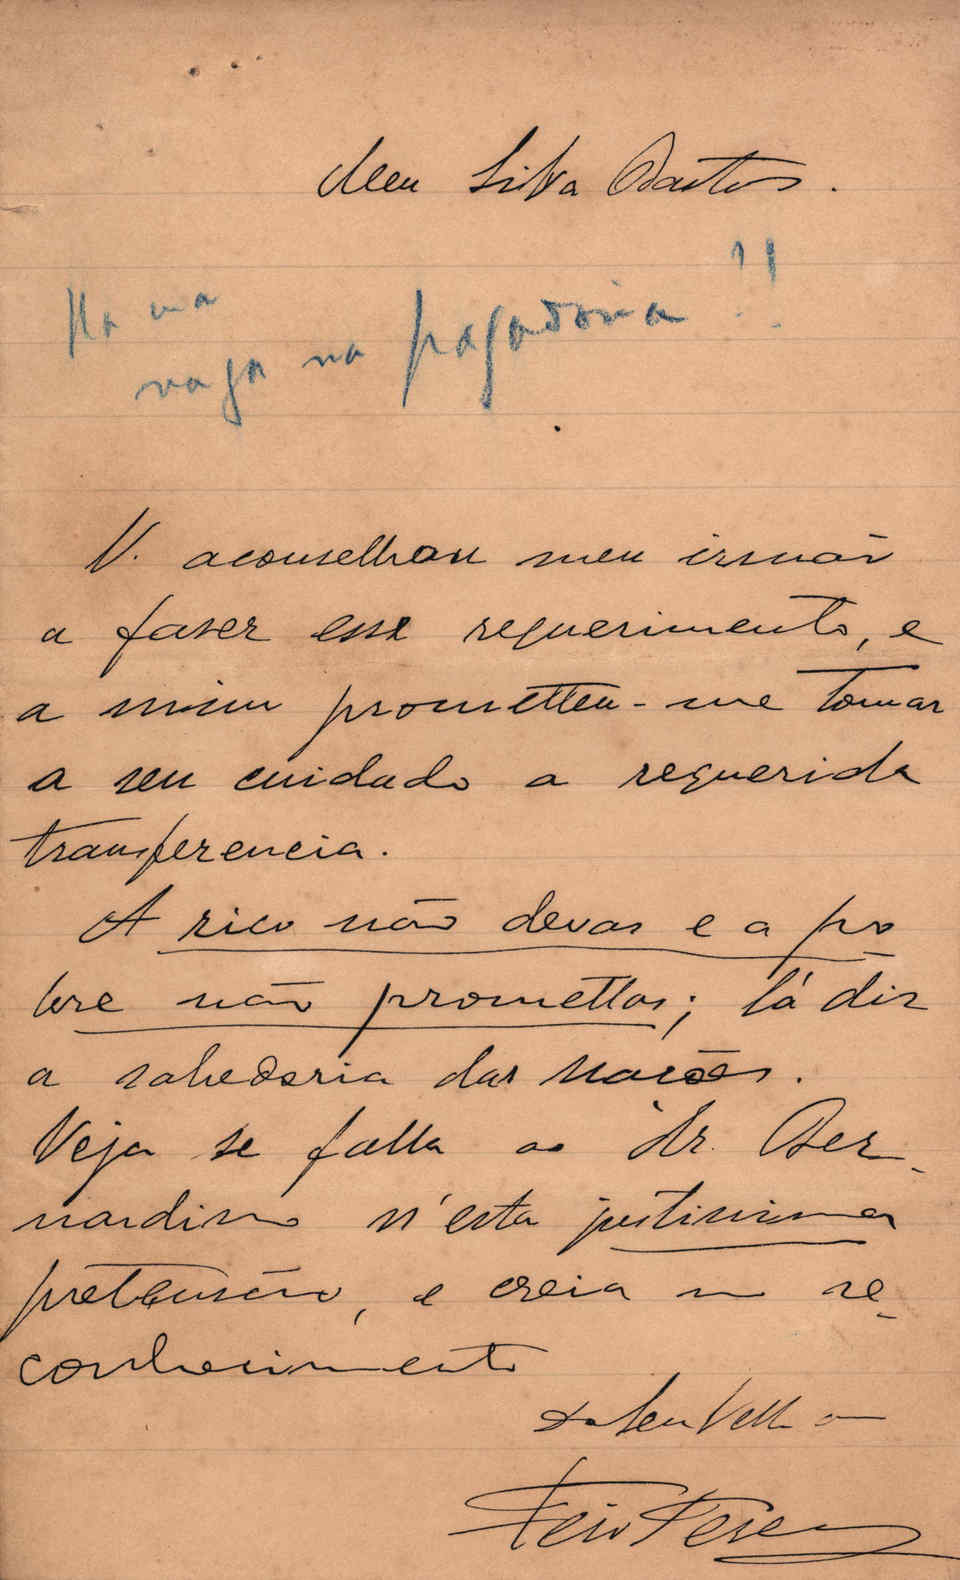 Meu Silva Bastos.
Ha uma
vaga na pagadoria!!
V. aconselhou meu irmão
a faser esse requerimento, e
a mim prometteu-me tomar
a seu cuidado a requerida
transferencia.
A rico não devas e a po
bre não promettas; lá diz
a sabedoria das nações.
Veja se falla ao Dr. Ber-
nardino n'esta justissima
pretensão, e creia no re-
conhecimento
do seu Velho
Feio Terenas